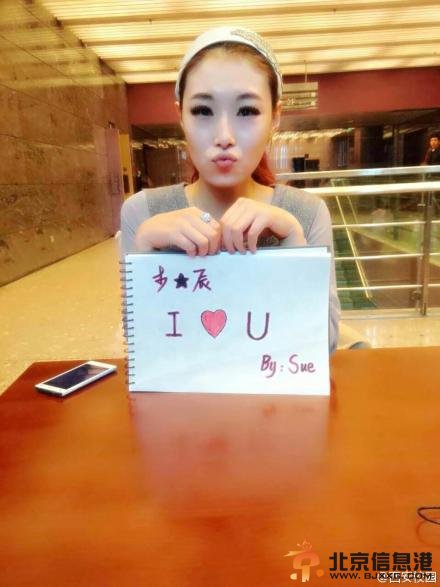 步★辰
I ♥ U
By: Sue
北京信息港
WWW.BJXXG.COM